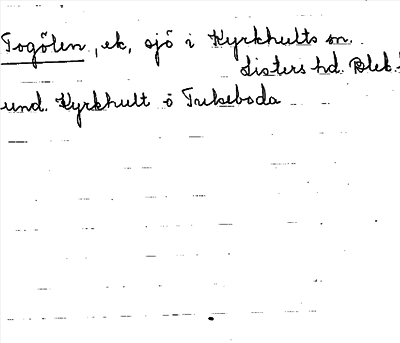 Togölen, ek, sjö i Kyrkhults sn.
Listers hd. Blek.
und. Kyrkhult o Tulseboda